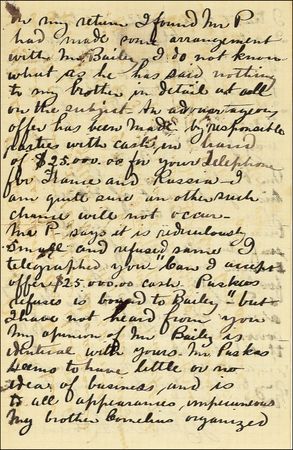 On my return I found Mr P
had made some arrangement
with Mr Bailey, I do not know
what as he has said nothing
to my brother in detail at all
on the subject. An advantageous
offer has been made by responsible
parties with cash in hand
of $25.000.00 for your Telephone
for France and Russia. I
am quite sure an other such
chance will not occur.
Mr P- says it is rediculously
small and refused same I
telegraphed you "Can I accept
offer $25,000.00 cash. Puskas
refuses is bound to Bailey" but
I have not heard from you
My opinion of Mr Bailey is
identical with yours. Mr Puskas
seems to have little or no
idea of business, and is
to all appearances, impecunious
My brother Cornelius organized